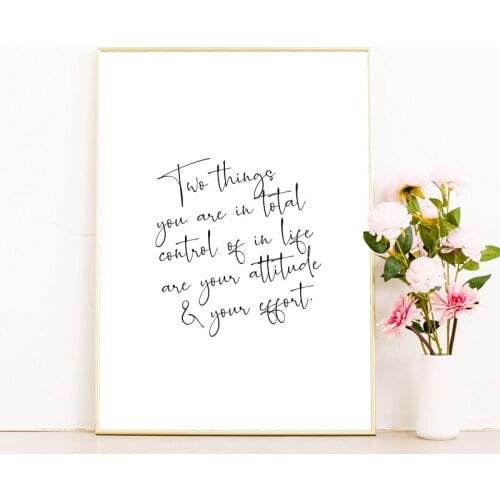 Two things
you are in total
control of in life
are your attitude
& your effort.